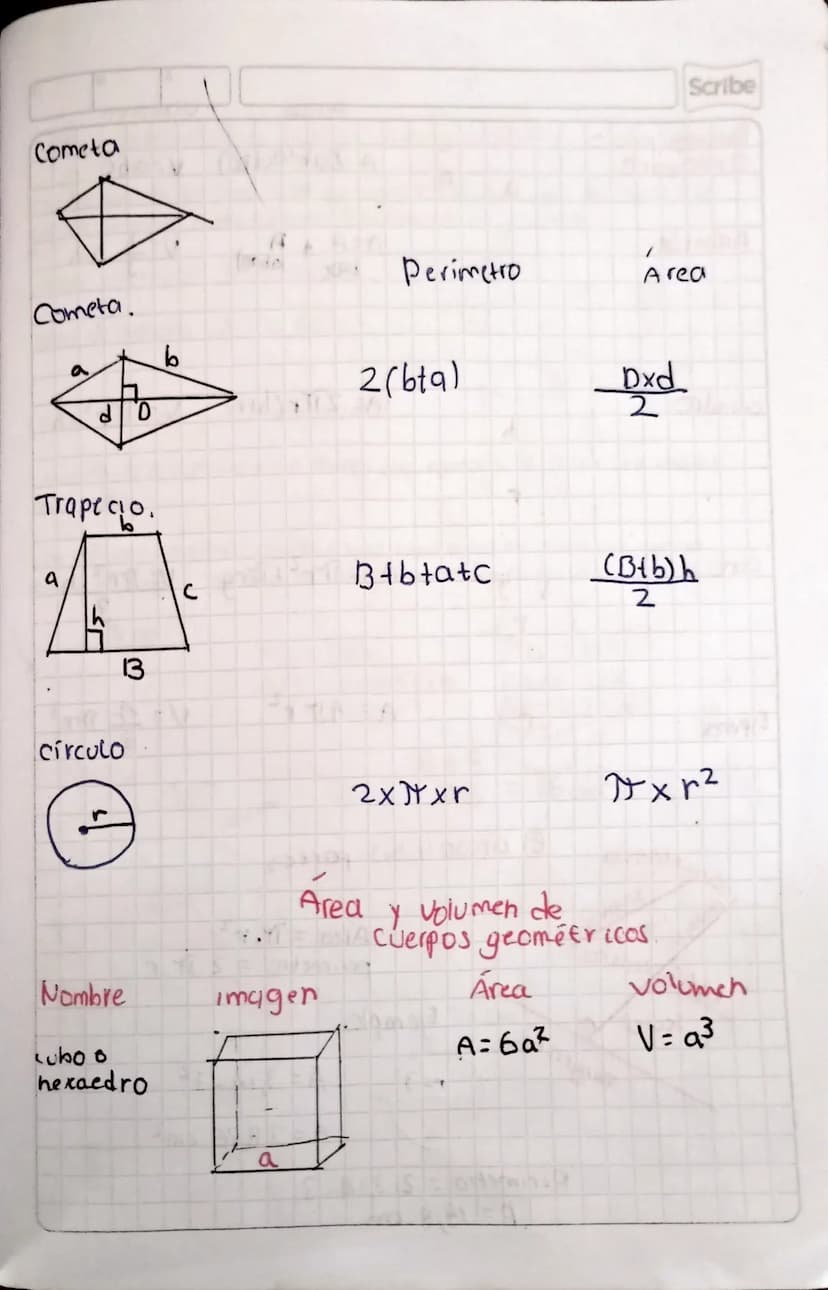 Scribe
Cometa
Perimetro Área
Cometa.
a b
2(b+a) D×d
2
d D
Trapecio.
b
a c h
B+b+a+c (B+b)h
2
B
círculo
r
2×π×r π×r²
Área y volumen de
cuerpos geométricos
Nombre imagen Área volumen
cubo o
hexaedro
A=6a² V=a³
a